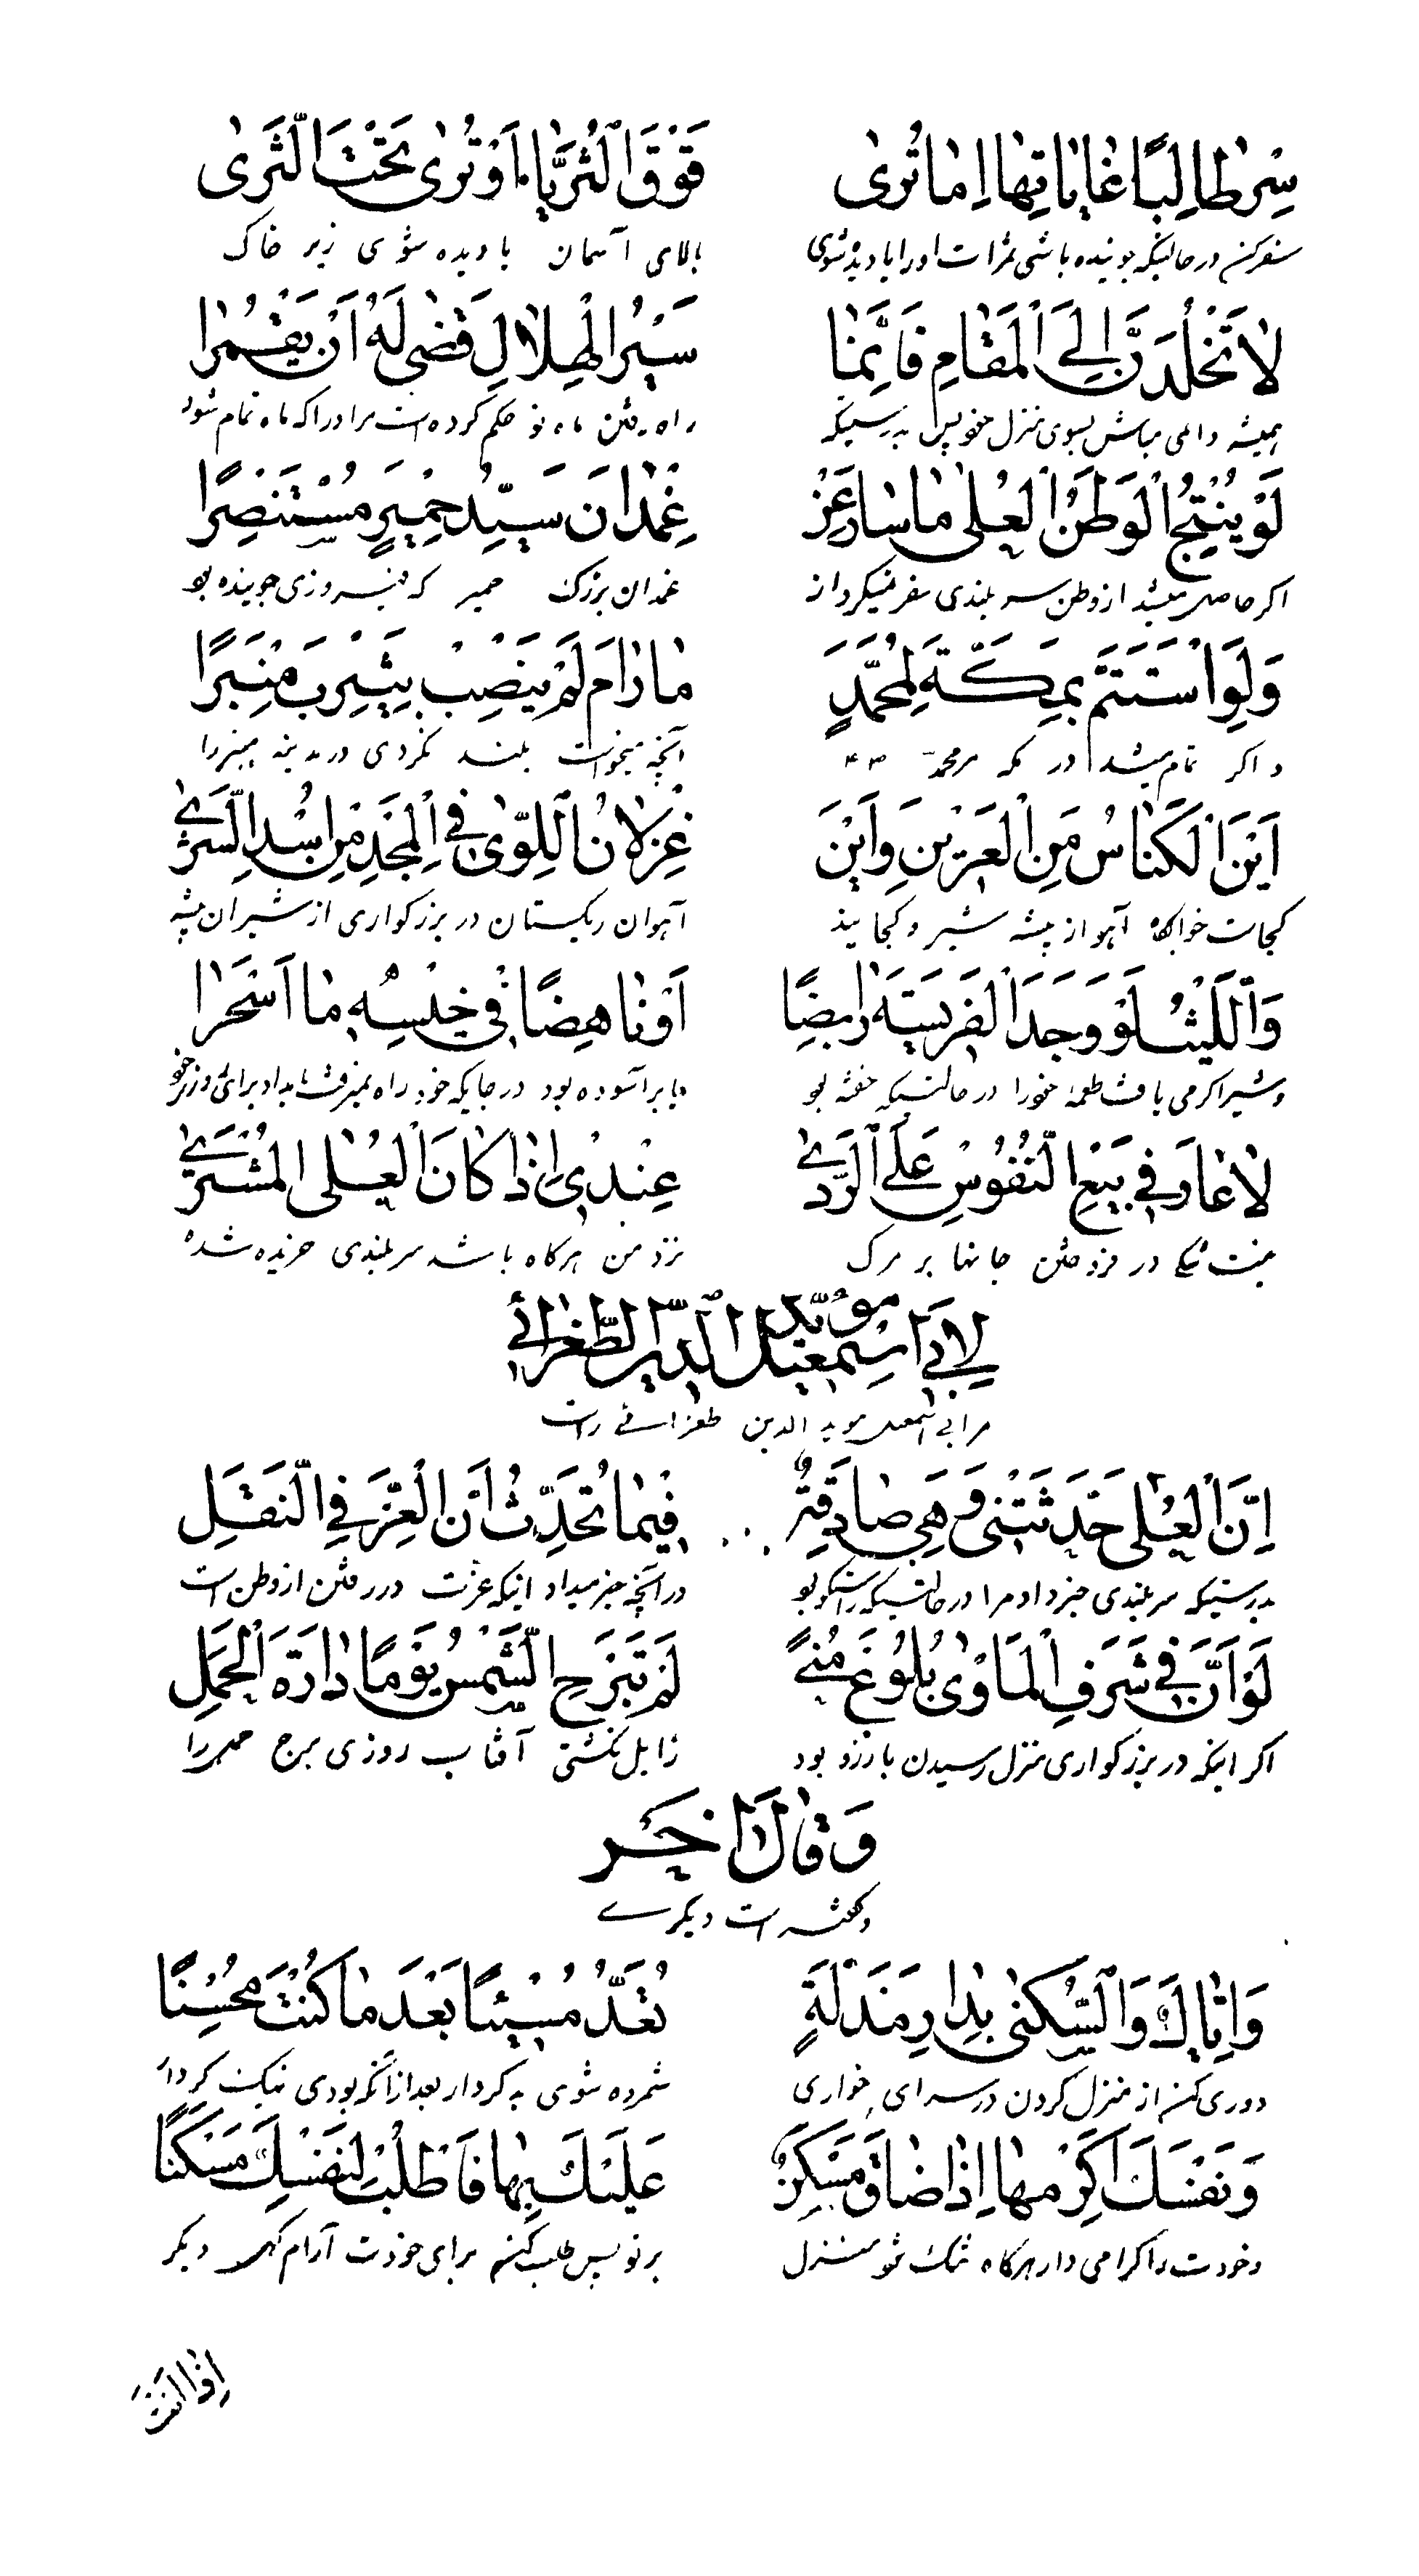 سِرْ طالِبًا غاياتِها اِما تُرىٰ فَوْقَ الثُّرَيّا اَوْ تُرىٰ تَحْتَ الثَّرىٰ
سفر کن در حالتیکه جوینده باشی ثمرات او را یا دیده شوی بالای آسمان یا دیده شوی زیر خاک
لا تَخْلُدَنَّ اِلَى الْمَقامِ فَاِنَّما سَيْرُ الْهِلالِ قَضىٰ لَهُ اَنْ يُقْمِرا
همیشه دائمی مباش بسوی منزل خویش بدرستیکه راه رفتن ماه نو حکم کرده است مر او را که ماه تمام شود
لَوْ يُنْتِجُ الْوَطَنُ الْعُلىٰ ما سارَ عَنْ غُمْدانَ سَيِّدُ حِمْيَرٍ مُسْتَنْصِرًا
اگر حاصل میشد از وطن سر بلندی سفر نمیکرد از غمدان بزرگ حمیر که فیروزی جوینده بود
وَلَوِ اسْتَتَمَّ بِمَكَّةَ لِمُحَمَّدٍ ما رامَ لَمْ يَنْصِبْ بِيَثْرِبَ مِنْبَرًا
و اگر تمام میشد در مکه مر محمد آنچه میخواست بلند نکردی در مدینه منبر را
اَيْنَ الْكِناسُ مِنَ الْعَرِينِ وَاَيْنَ غِزْلانُ اللِّوىٰ فِى الْمَجْدِ مِنْ اُسْدِ الشَّرىٰ
کجاست خوابگاه آهو از بیشه شیر و کجایند آهوان ریگستان در بزرگواری از شیران بیشه
وَاللَّيْثُ لَوْ وَجَدَ الْفَرِيسَةَ رابِضًا اَوْ ناهِضًا فى خِيسِهِ ما اَسْحَرا
و شیر اگر می یافت طعمه خود را در حالتیکه خفته بود یا بر آسوده بود در جایگه خود راه نمیرفت بامداد برای روزی خود
لا عارَ فى بَيْعِ النُّفُوسِ عَلَى الرَّدىٰ عِنْدى اِذا كانَ الْعُلىٰ الْمُشْتَرىٰ
نیست ننگی در فروختن جانها بر مرگ نزد من هرگاه باشد سر بلندی خریده شده
لِاَبى اِسْمعيلَ مُؤَيَّدِ الدّينِ الطُّغْرائى
مر ابی اسمعیل موید الدین طغرائی راست
اِنَّ الْعُلىٰ حَدَّثَتْنى وَهِىَ صادِقَةٌ فيما تُحَدِّثُ اَنَّ الْعِزَّ فِى النُّقَلِ
بدرستیکه سر بلندی خبر داد مرا در حالتیکه راستگو بود در آنچه خبر میداد اینکه عزت در رفتن از وطن است
لَوْ اَنَّ فى شَرَفِ الْمَأْوىٰ بُلُوغَ مُنىً لَمْ تَبْرَحِ الشَّمْسُ يَوْمًا دارَةَ الْحَمَلِ
اگر اینکه در بزرگواری منزل رسیدن بارزو بود زایل نگشتی آفتاب روزی برج حمل را
وَقالَ اخَر
و گفته است دیگرے
وَاِيّاكَ وَالسُّكْنىٰ بِدارِ مَذَلَّةٍ تُعَدُّ مُسيئًا بَعْدَ ما كُنْتَ مُحْسِنًا
دوری کن از منزل کردن در سرای خواری شمرده شوی بد کردار بعد از آنکه بودی نیک کردار
وَنَفْسَكَ اَكْرِمْها اِذا ضاقَ مَسْكَنٌ عَلَيْكَ بِها فَاطْلُبْ لِنَفْسِكَ مَسْكَنًا
و خودت را گرامی دار هرگاه تنگ شد منزل بر تو پس طلب کن برای خودت آرام گهی دیگر
اِذا اَنْتَ